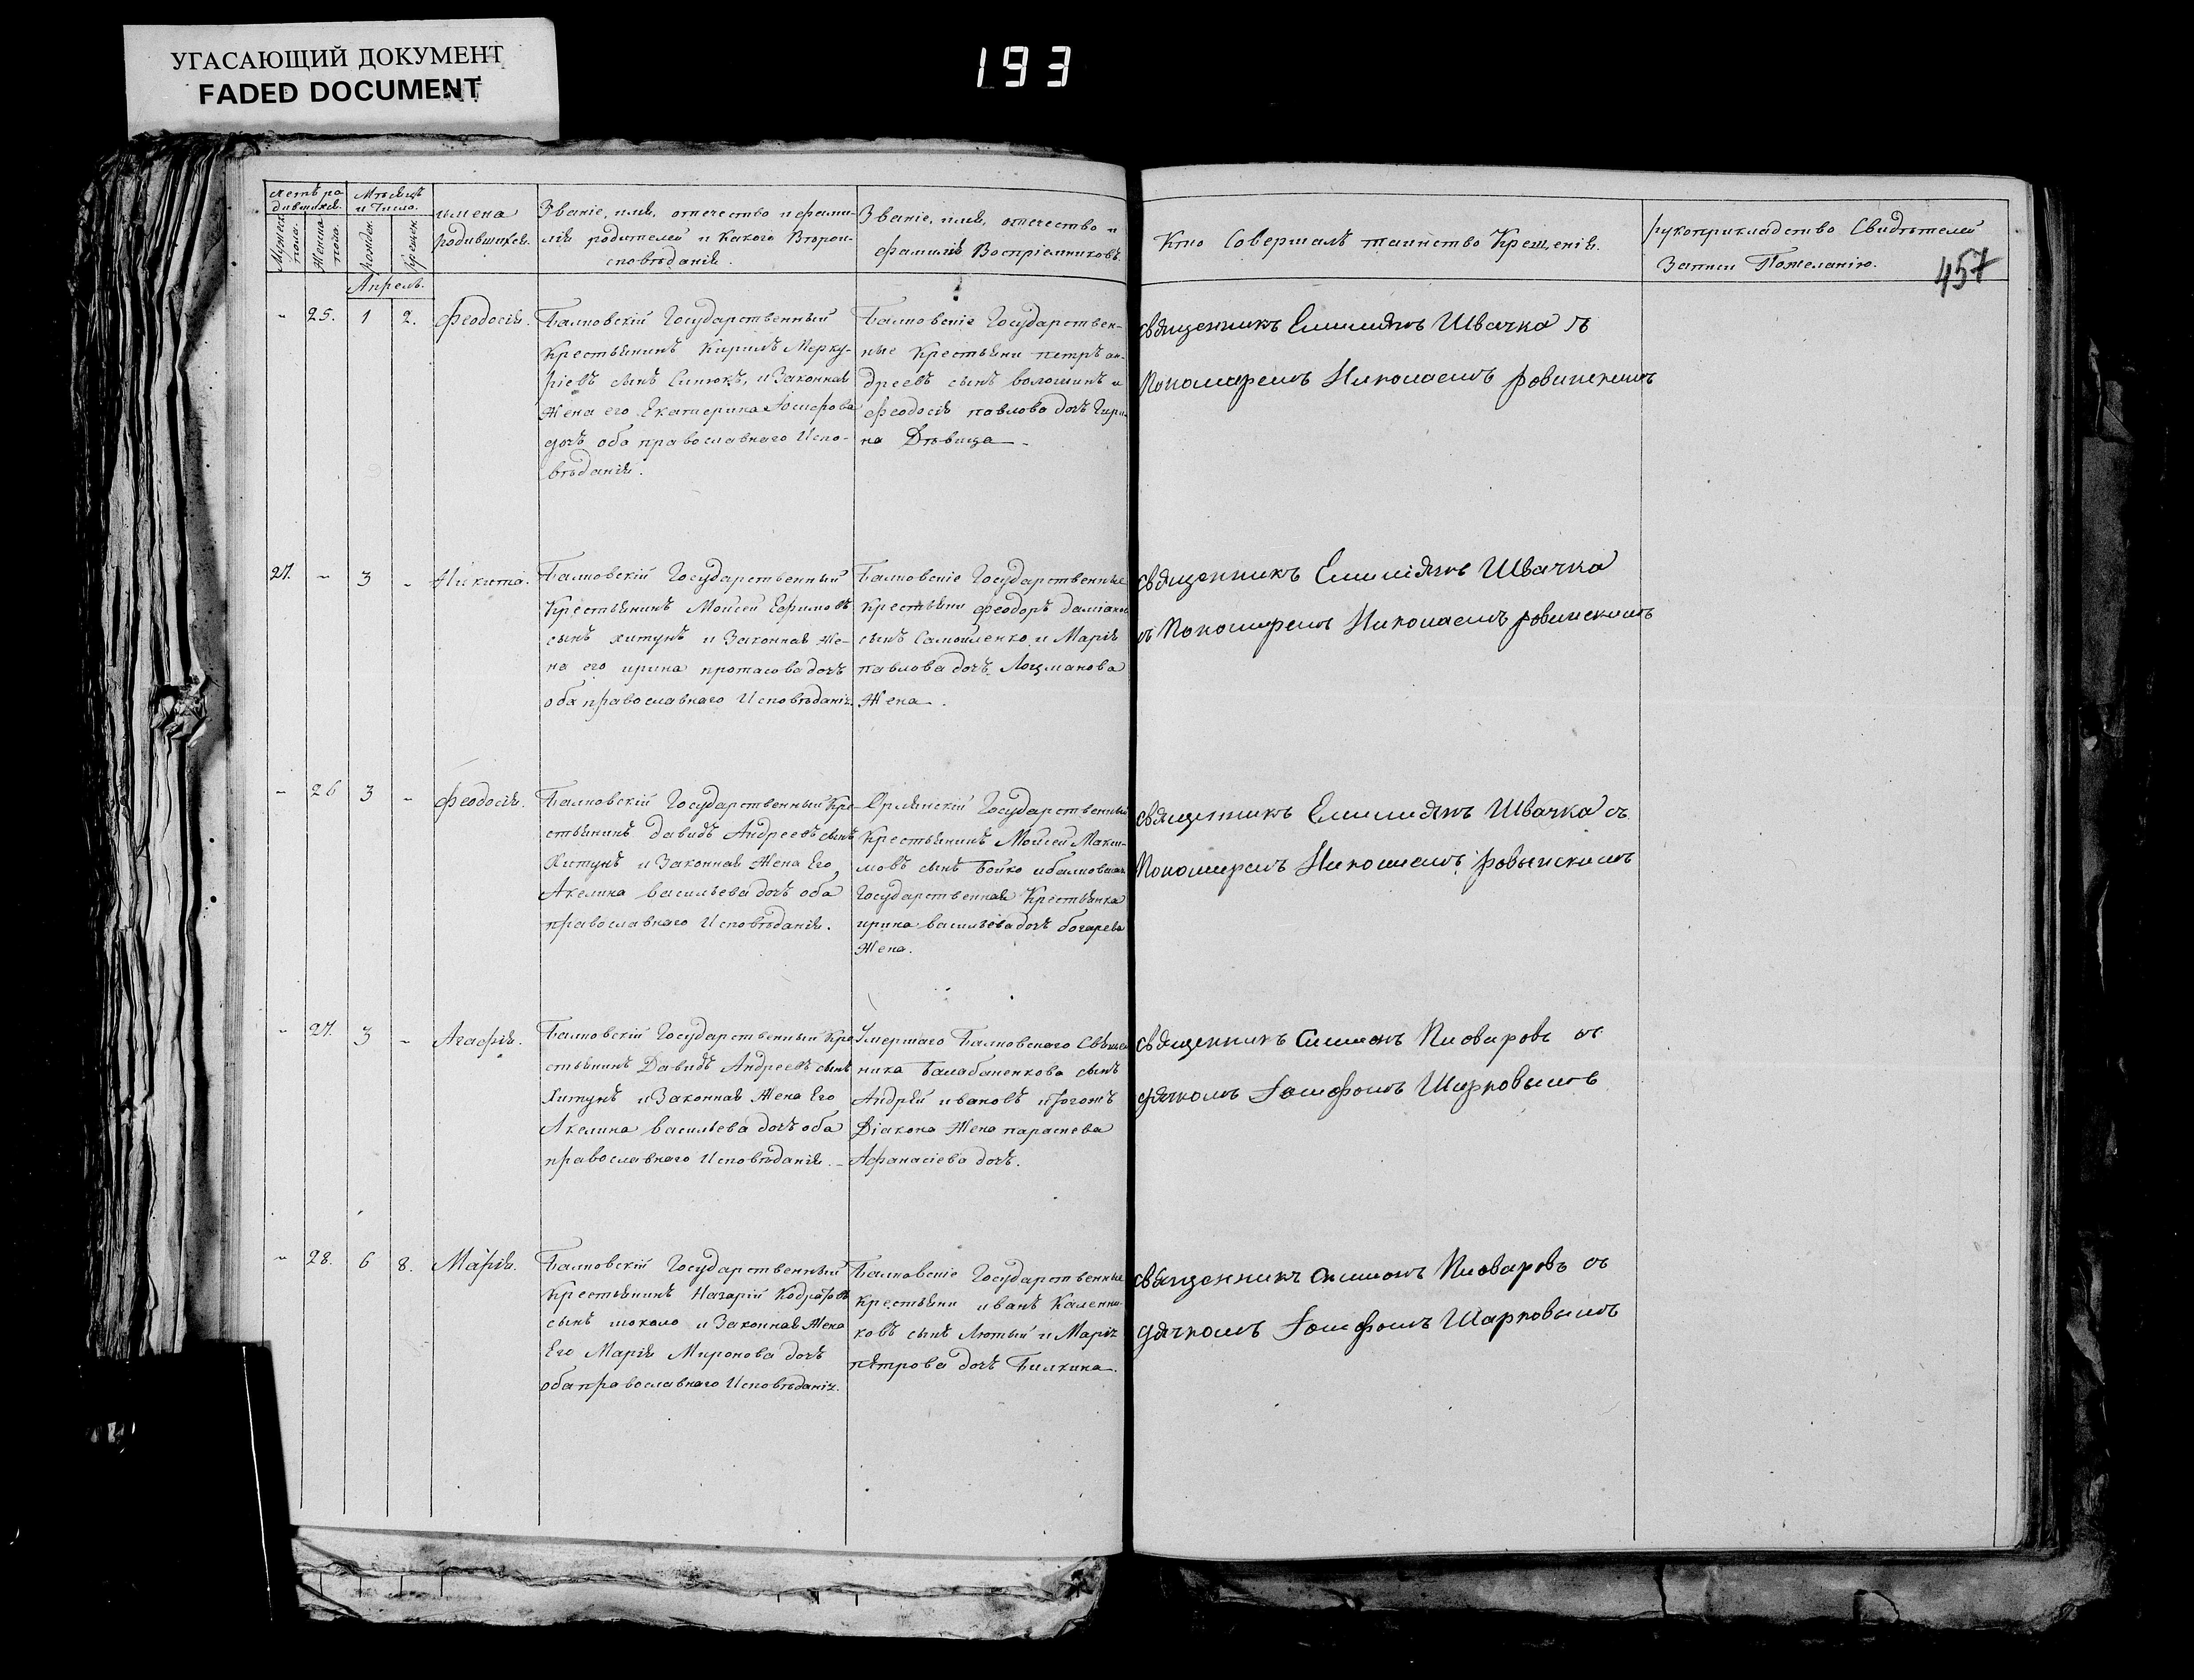 УГАСАЮЩИЙ ДОКУМЕНТ
FADED DOCUMENT
193
457
Счетъ ро-
дившихся.
Мужеска
пола.
Женска
пола.
Мѣсяцъ
и Число.
рожден.
крещен.
имена
родившихся.
Званіе, имя, отчество и фами-
лія родителей и Какого Вѣрои-
сповѣданія.
Званіе, имя, отчество и
фамилія Воспріемниковъ.
Кто Совершалъ таинство Крещенія.
рукоприкладство Свидѣтелей
Записи По желанію.
Апрель.
- 25. 1 2. Феодосія.
Балковскій Государственный
Крестьянинъ Кирилъ Мерку-
ріевъ сынъ Синюкъ, и Законная
Жена его Екатерина Іосифова
дочь оба православнаго Испо-
вѣданія.
Балковскіе Государствен-
ные Крестьяни петръ ан-
дреевъ сынъ волошинъ и
Феодосія павлова дочь
на Дѣвица
священникъ Емиліянъ Швачка съ
Пономаремъ Николаемъ ровинскимъ
27. - 3 - Никита.
Балковскій Государственный
Крестьянинъ Моисей Ефимовъ
сынъ хитунъ и Законная Же-
на его ирина протасова дочь
оба православнаго Исповѣданія
Балковскіе Государственные
крестьяни феодоръ даміановъ
сынъ Самойленко и Марія
павлова дочь Лоцманова
Жена.
священникъ Емиліянъ Швачка
съ Пономаремъ Николаемъ ровинскимъ
- 26 3 - Феодосія.
Балковскій Государственный Кре-
стьянинъ давидъ Андреевъ сынъ
Хитунъ и Законная Жена Его
Акелина васильева дочь оба
православнаго Исповѣданія.
Орлянскій Государственный
Крестьянинъ Моисей Макси-
мовъ сынъ бойко и балковская
Государственная Крестьянка
ирина васильева дочь богарева
Жена.
священникъ Емиліянъ Швачка съ
Пономаремъ Николаемъ ровинскимъ
- 27. 3 - Агафія.
Балковскій Государственный Кре
стьянинъ Давидъ Андреевъ сынъ
Хитунъ и Законная Жена Его
Акелина васильева дочь оба
православнаго Исповѣданія.
Умершаго Балковского Священ
ника Балабаненкова сынъ
Андрей ивановъ и тогожъ
Діакона Жена параскева
Афанасіева дочь.
священникъ Симонъ Пиваровъ съ
дячкомъ Іосифомъ Шарковымъ
- 28. 6 8. Марія.
Балковскій Государственный
Крестьянинъ Назарій Кодратовъ
сынъ шокало и Законная Жена
Его Марія Миронова дочь
оба православнаго Исповѣданія.
Балковскіе Государственные
крестьяни иванъ Каленни-
ковъ сынъ Лютый и Марія
петрова дочь Билкина.
священникъ Симонъ Пиваровъ съ
дячкомъ Іосифомъ Шарковымъ